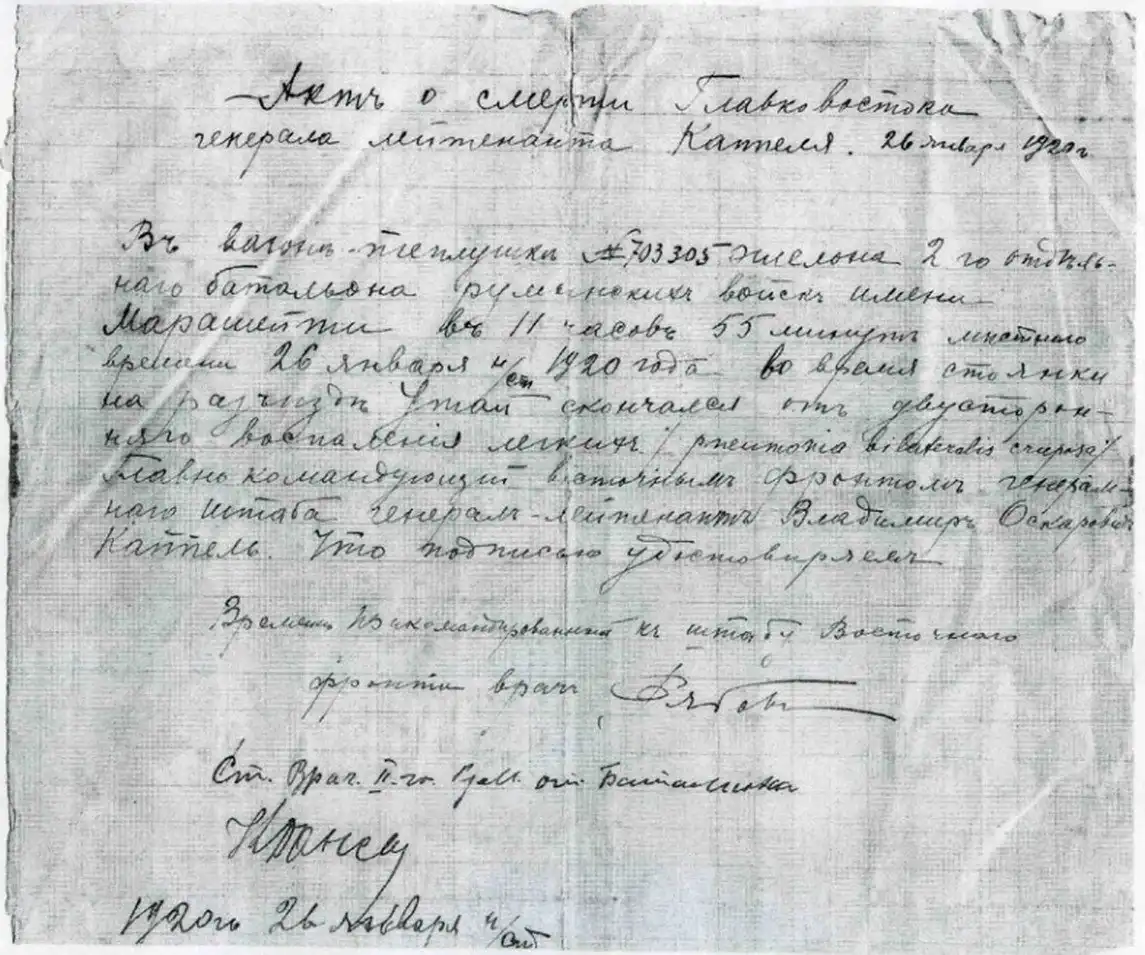 Актъ о смерти Главковостока
генерала лейтенанта Каппеля. 26 января 1920 г
Въ вагонѣ-теплушкѣ №703305 эшелона 2 го отдѣль-
наго батальона румынскихъ войскъ имени
Марашети въ 11 часовъ 55 минутъ мѣстнаго
времени 26 января н/ст 1920 года во время стоянки
на разъѣздѣ Утай скончался отъ двусторон-
няго воспаленія легкихъ / pneumonia bilateralis crouposa /
Главнокомандующій восточнымъ фронтомъ генераль-
наго штаба генералъ-лейтенантъ Владимиръ Оскаровичъ
Каппель. Что подписью удостовѣряемъ
Времен. прикомандированный къ штабу Восточнаго
фронта врачъ
Ст. Врач. II-го Рум. от. Батальона
1920 г 26 января н/ст